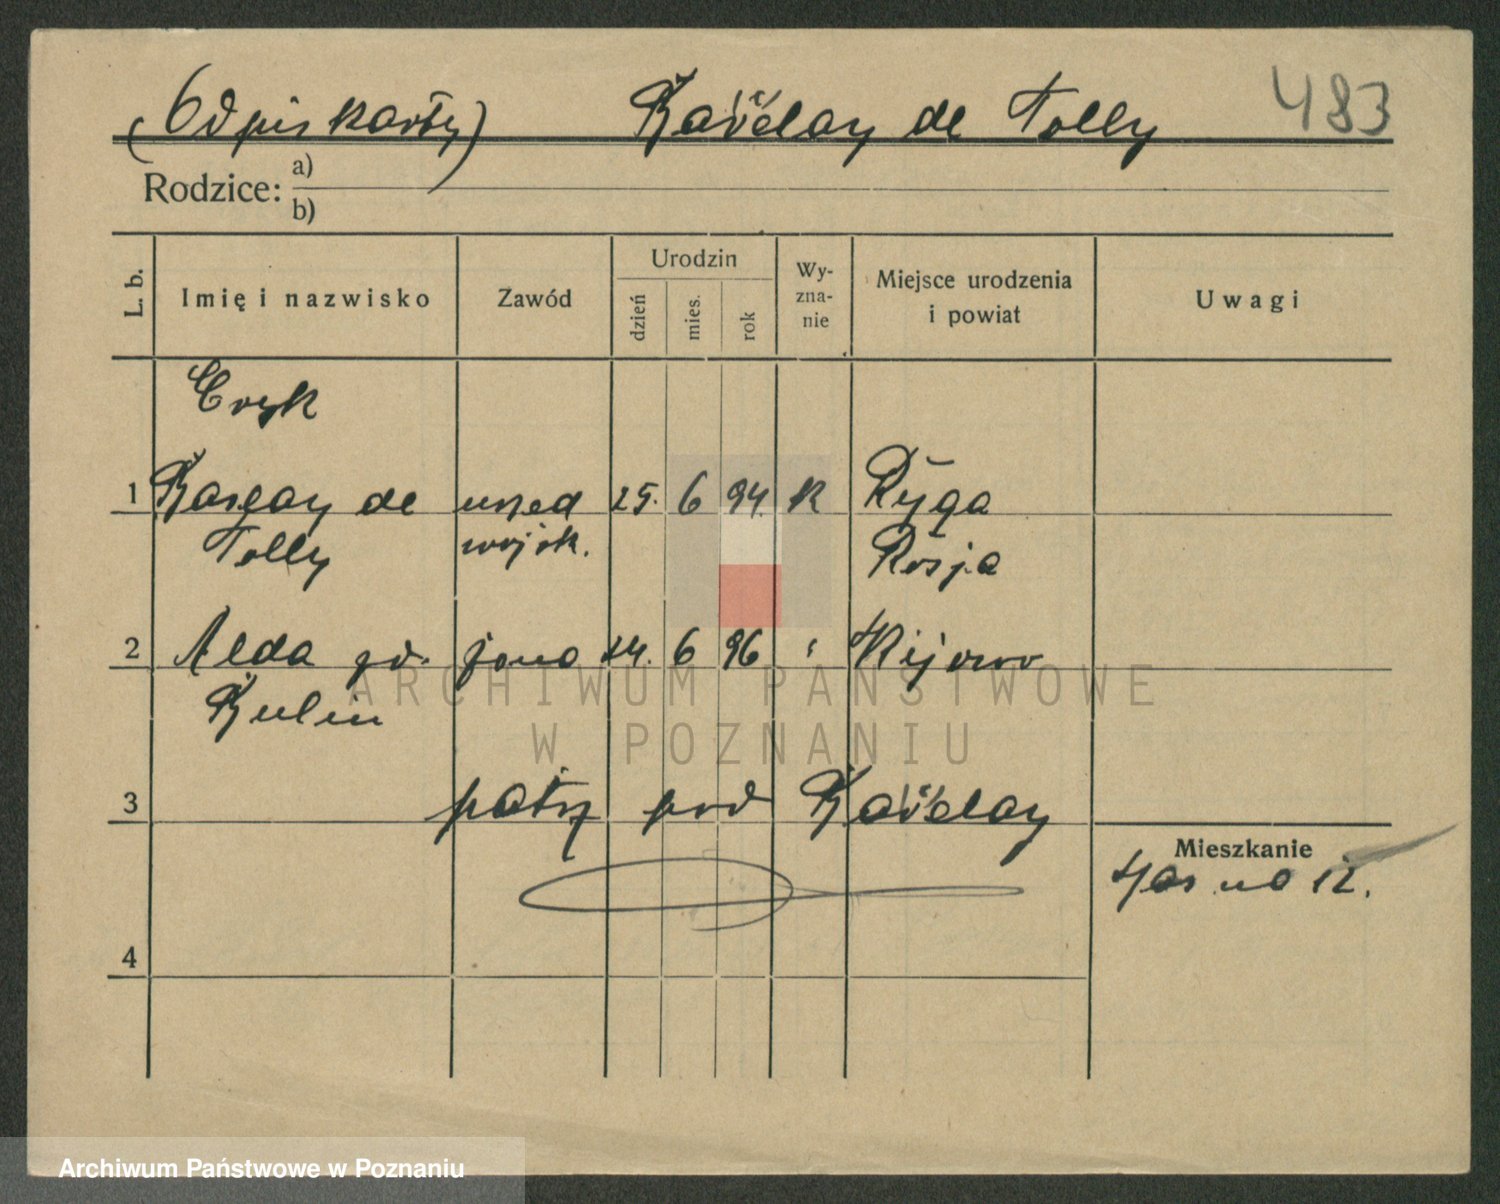 (Odpis karty) Barclay de Tolly 483
Rodzice: a)
b)
L. b. Imię i nazwisko Zawód Urodzin dzień mies. rok Wy-zna-nie Miejsce urodzenia i powiat Uwagi
Eryk
1 Barclay de urzęd 25. 6 94. k Ryga
Tolly wojsk. Rosja
2 Alda żona 24. 6 96 Kijowo
3 patrz pod Barclay
Mieszkanie
12.
4
ARCHIWUM PAŃSTWOWE
W POZNANIU
Archiwum Państwowe w Poznaniu